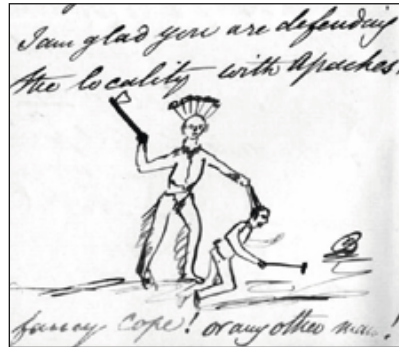 I am glad you are defending
the locality with Apaches.
fancy Cope! or any other man!